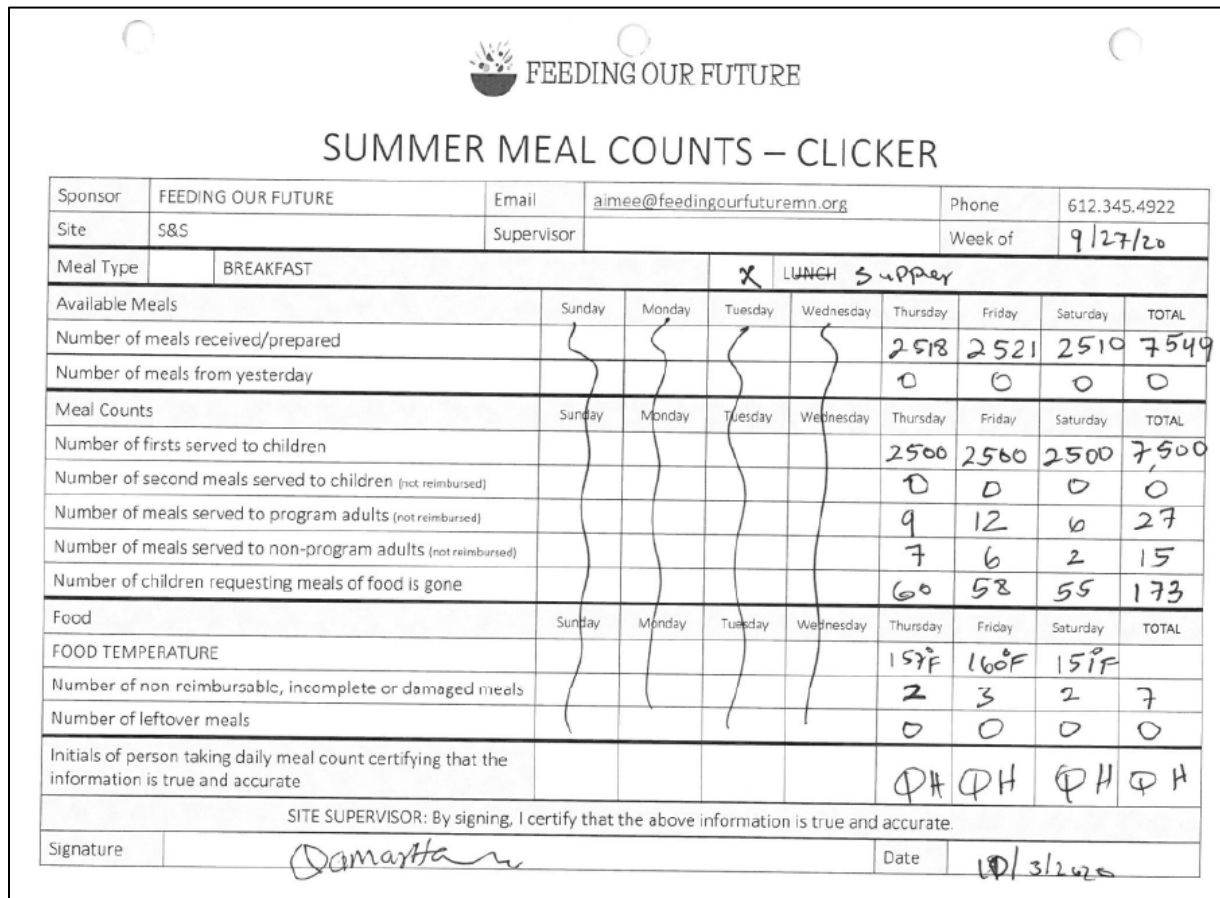 FEEDING OUR FUTURE
SUMMER MEAL COUNTS – CLICKER
Sponsor FEEDING OUR FUTURE Email aimee@feedingourfuturemn.org Phone 612.345.4922
Site S&S Supervisor Week of 9/27/20
Meal Type BREAKFAST X LUNCH Supper
Available Meals Sunday Monday Tuesday Wednesday Thursday Friday Saturday TOTAL
Number of meals received/prepared 2518 2521 2510 7549
Number of meals from yesterday 0 0 0 0
Meal Counts Sunday Monday Tuesday Wednesday Thursday Friday Saturday TOTAL
Number of firsts served to children 2500 2500 2500 7,500
Number of second meals served to children (not reimbursed) 0 0 0 0
Number of meals served to program adults (not reimbursed) 9 12 6 27
Number of meals served to non-program adults (not reimbursed) 7 6 2 15
Number of children requesting meals of food is gone 60 58 55 173
Food Sunday Monday Tuesday Wednesday Thursday Friday Saturday TOTAL
FOOD TEMPERATURE 157°F 160°F 151°F
Number of non reimbursable, incomplete or damaged meals 2 3 2 7
Number of leftover meals 0 0 0 0
Initials of person taking daily meal count certifying that the
information is true and accurate
SITE SUPERVISOR: By signing, I certify that the above information is true and accurate.
Signature Date 10/3/2020